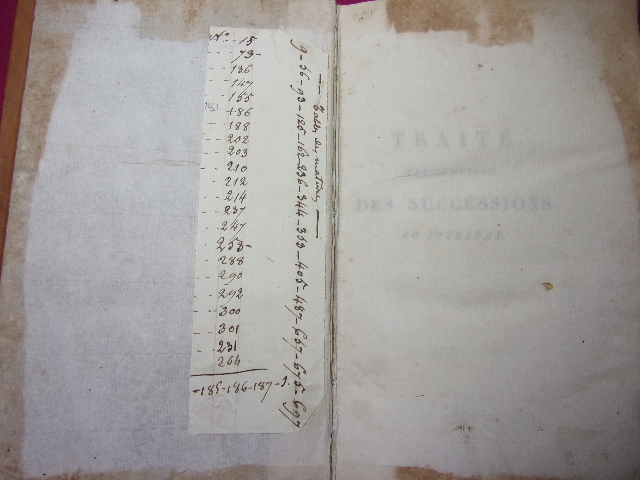 N° - 15
- 73 -
- 136
- 147
- 155
- 186
- 188
- 202
- 203
- 210
- 212
- 214
- 237
- 247
- 255 -
- 288
- 290
- 292
- 300
- 301
- 231
- 264
- 185 - 186 - 187 -
— Table des matières —
9 - 56 - 93 - 125 - 162 - 236 - 344 - 353 - 405 - 487 - 657 - 675 - 697
TRAITÉ
DES SUCCESSIONS
AB INTESTAT.